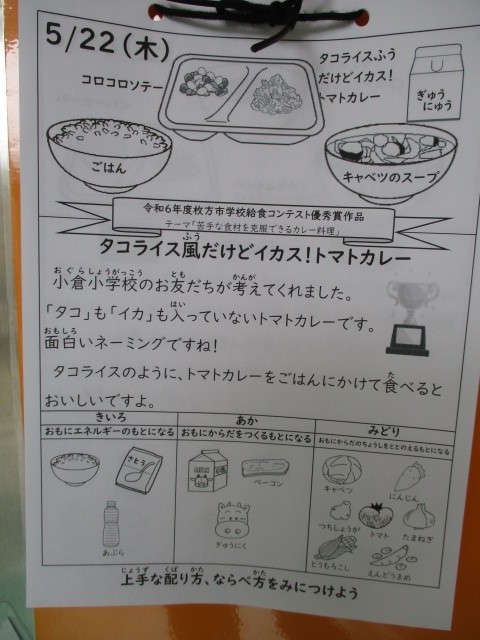 5/22(木)
コロコロソテー
タコライスふう
だけどイカス!
トマトカレー
ぎゅう
にゅう
ごはん
キャベツのスープ
令和6年度枚方市学校給食コンテスト優秀賞作品
テーマ「苦手な食材を克服できるカレー料理」
タコライス風だけどイカス!トマトカレー
ふう
おぐらしょうがっこう とも かんが
小倉小学校のお友だちが考えてくれました。
はい
「タコ」も「イカ」も入っていないトマトカレーです。
おもしろ
面白いネーミングですね!
た
タコライスのように、トマトカレーをごはんにかけて食べると
おいしいですよ。
きいろ
おもにエネルギーのもとになる
さとう
あぶら
あか
おもにからだをつくるもとになる
ベーコン
ぎゅうにく
みどり
おもにからだのちょうしをととのえるもとになる
キャベツ
にんじん
つちしょうが
トマト
たまねぎ
とうもろこし
えんどうまめ
じょうず くば かた かた
上手な配り方、ならべ方をみにつけよう